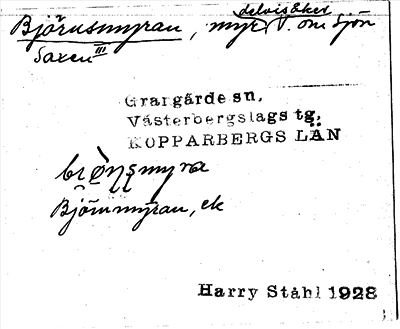 Björnsmyran, myr, delvis åker V. om sjön
Saxen III
Grangärde sn,
Västerbergslags tg,
KOPPARBERGS LÄN
Björnmyran, ek
Harry Ståhl 1928